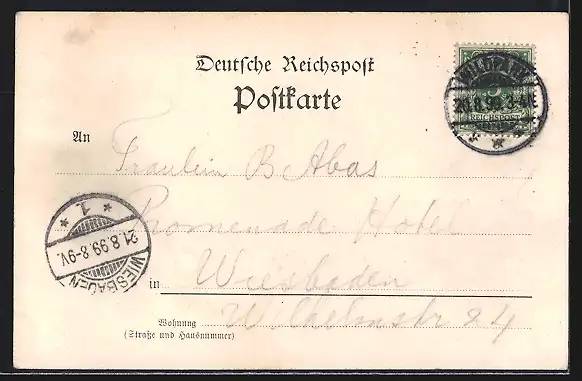 Deutsche Reichspost
Postkarte
20.8.99. 3-4N.
5
REICHSPOST
An
Fräulein B Abas
Promenade Hotel
1.
21.8.99.8-9V.
WIESBADEN
in Wiesbaden
Wohnung Wilhelmstr 24
(Straße und Hausnummer)